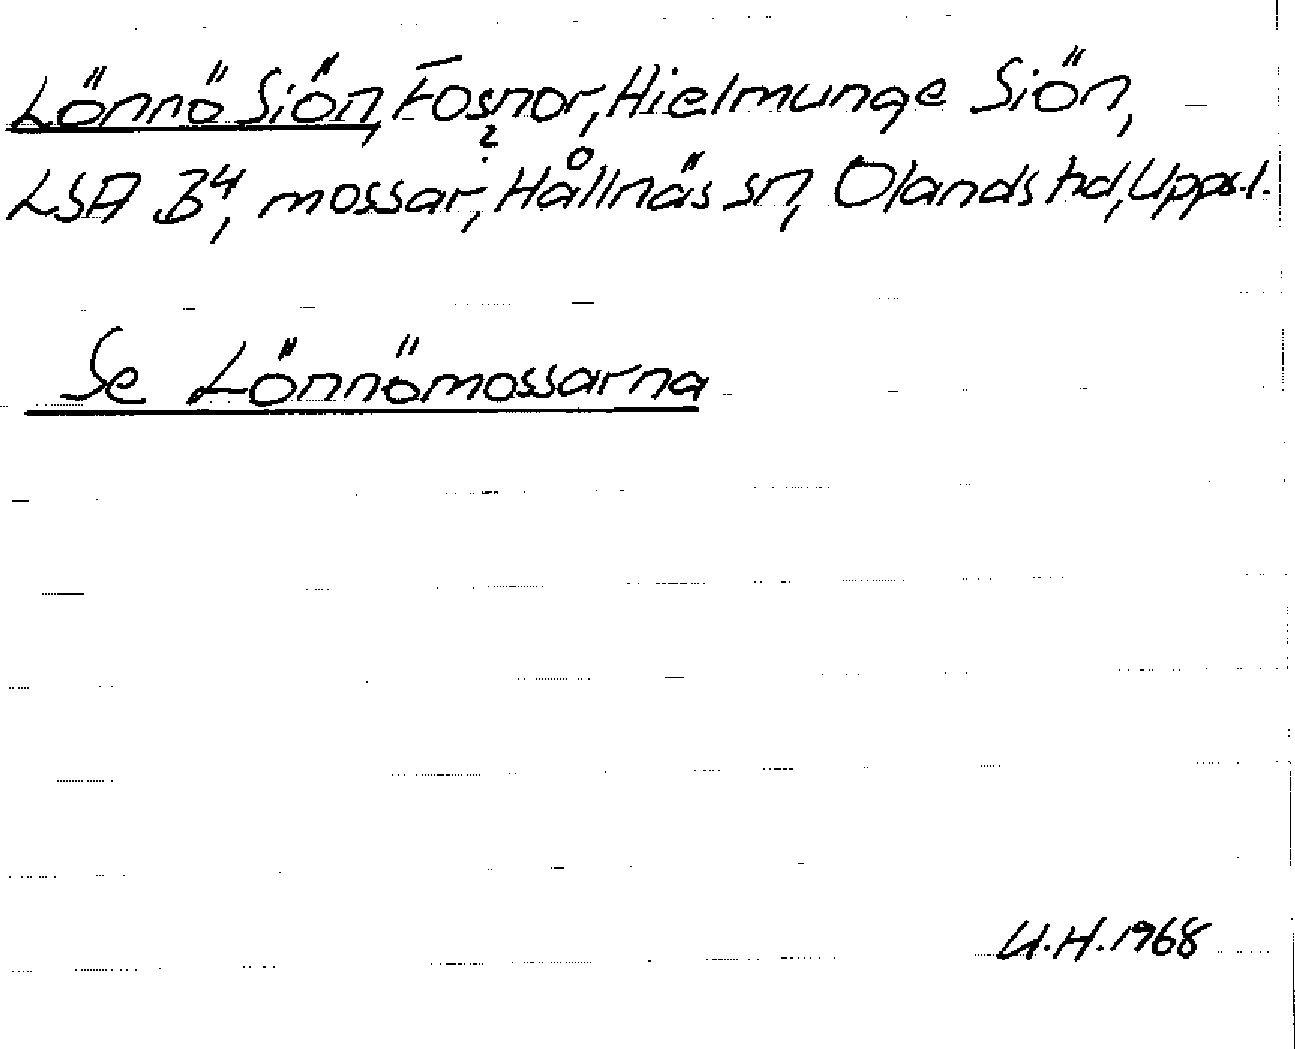 Lönnö Siön, Fosnor, Hielmunge Siön,
?
LSA B⁴, mossar, Hållnäs sn, Olands hd, Uppsl.
Se Lönnömossarna
U.H. 1968